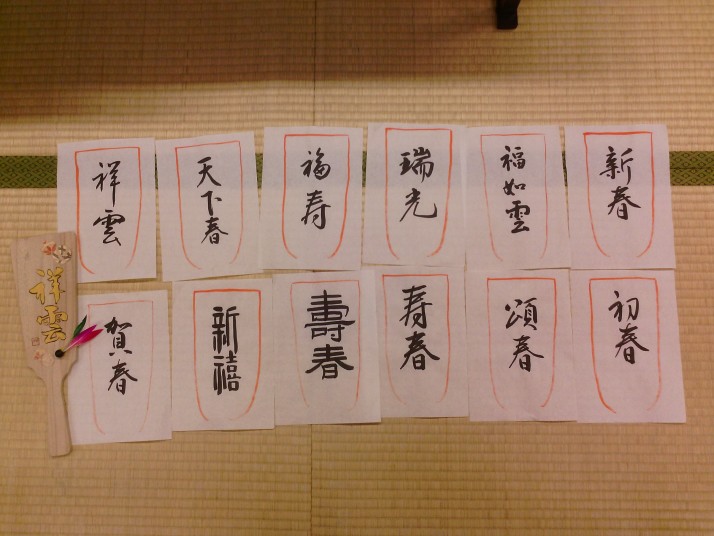 新春
福如雲
瑞光
福寿
天下春
祥雲
初春
頌春
寿春
壽春
新禧
賀春
祥雲